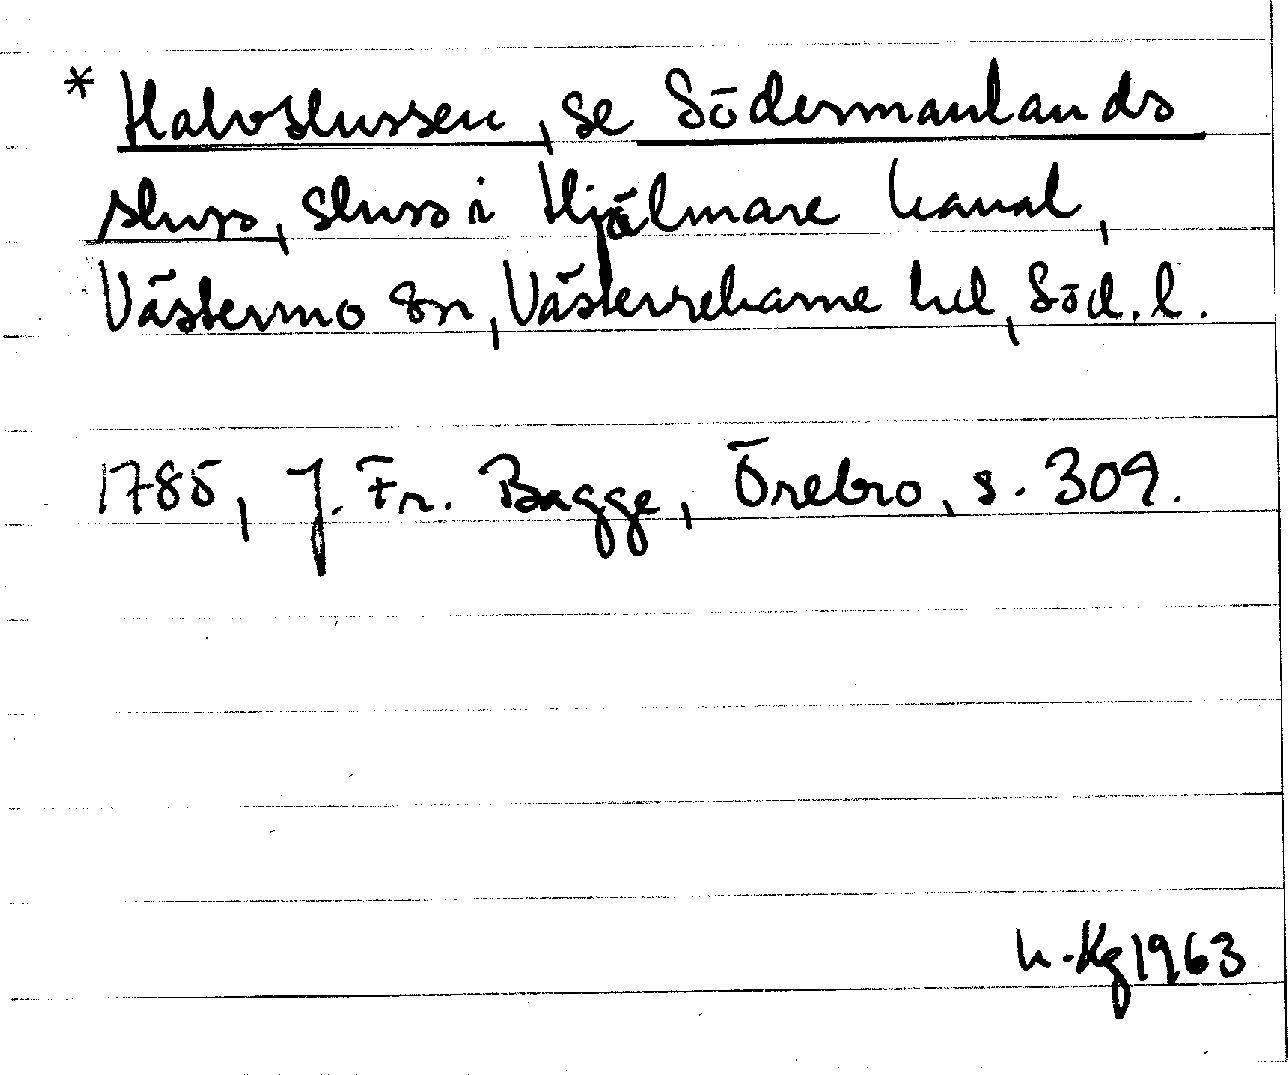 * Halvslussen, se Södermanlands
sluss, sluss i Hjälmare kanal,
Västermo sn, Västerrekarne hd, Söd. l.
1785, J. Fr. Bagge, Örebro, s. 309.
h.-Kg 1963